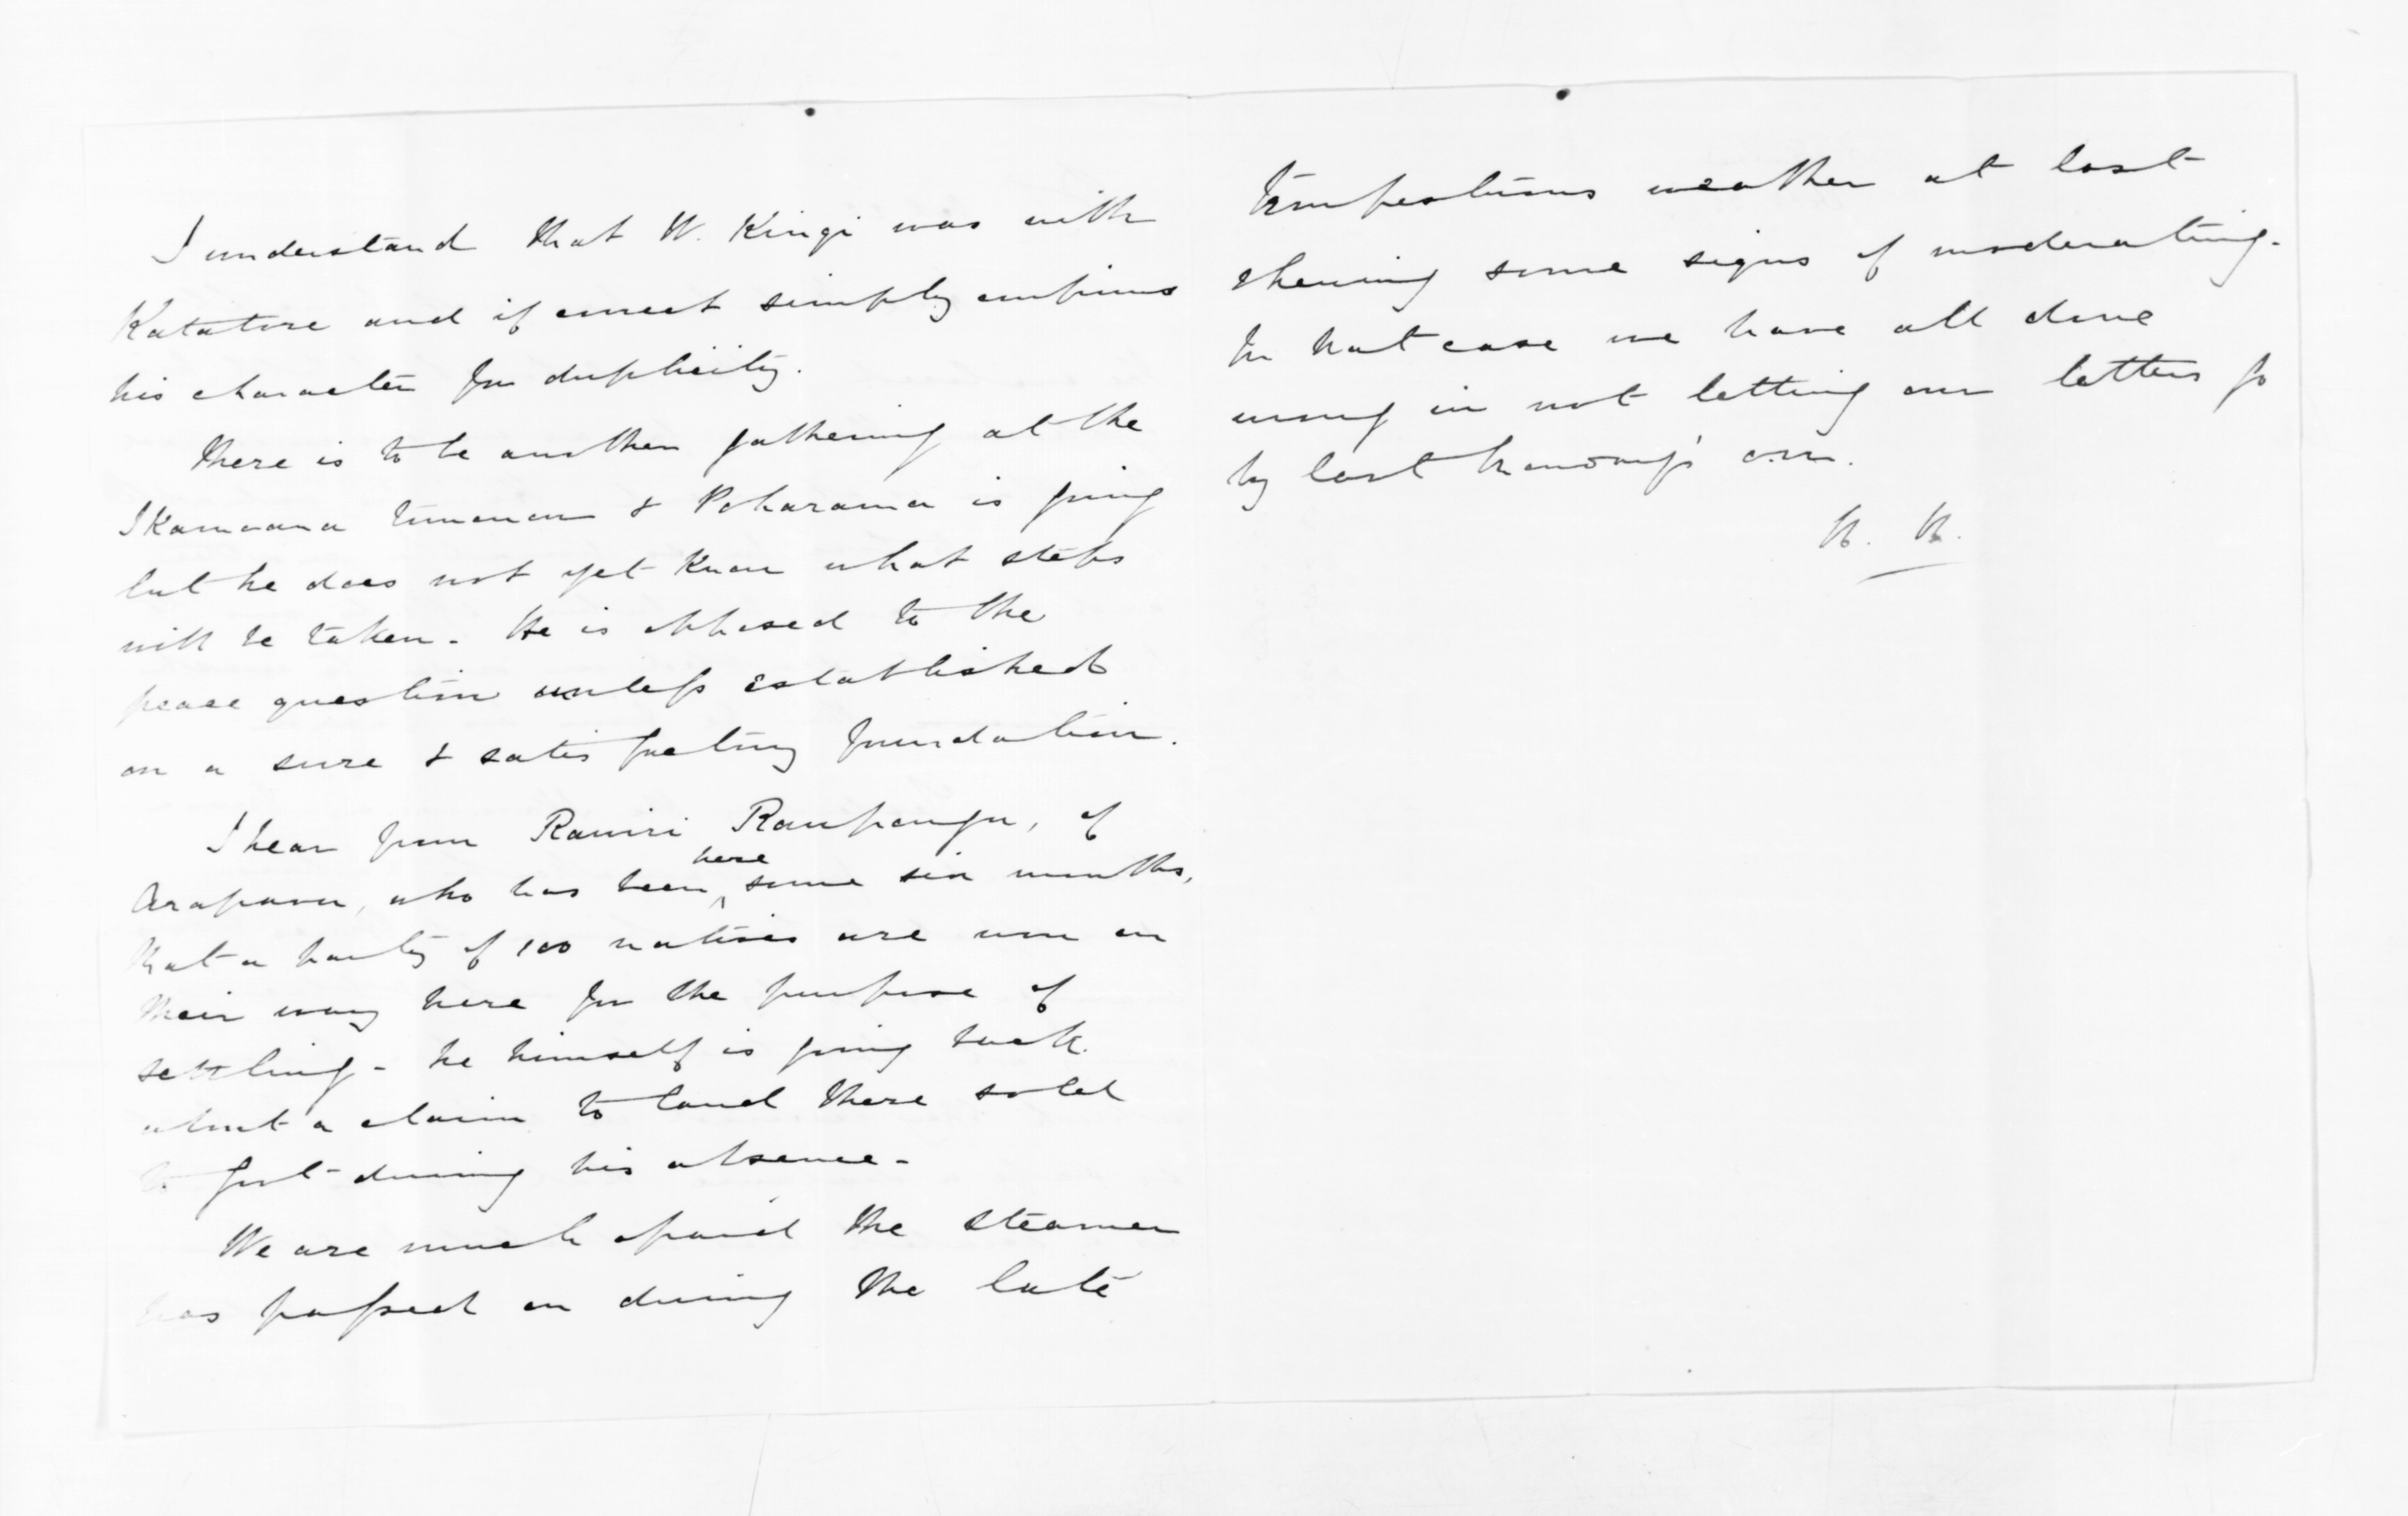 I understand that W. Kingi was with
Katatore and if correct simply confirms
his character for duplicity.
There is to be another gathering at the
Ikamoana tomorrow & Poharama is going
but he does not yet know what steps
will be taken - He is opposed to the
peace question unless established
on a sure & satisfactory foundation.
I hear from Rawiri Raupongo, of
Arapawa, who has been here some six months,
that a party of 100 natives are now on
their way here for the purpose of
settling - he himself is going back
about a claim to land there sold
to Govt during his absence -
We are much afraid the steamer
has passed on during the late
tempestuous weather at last
shewing some signs of moderating -
In that case we have all done
wrong in not letting our letters go
by last